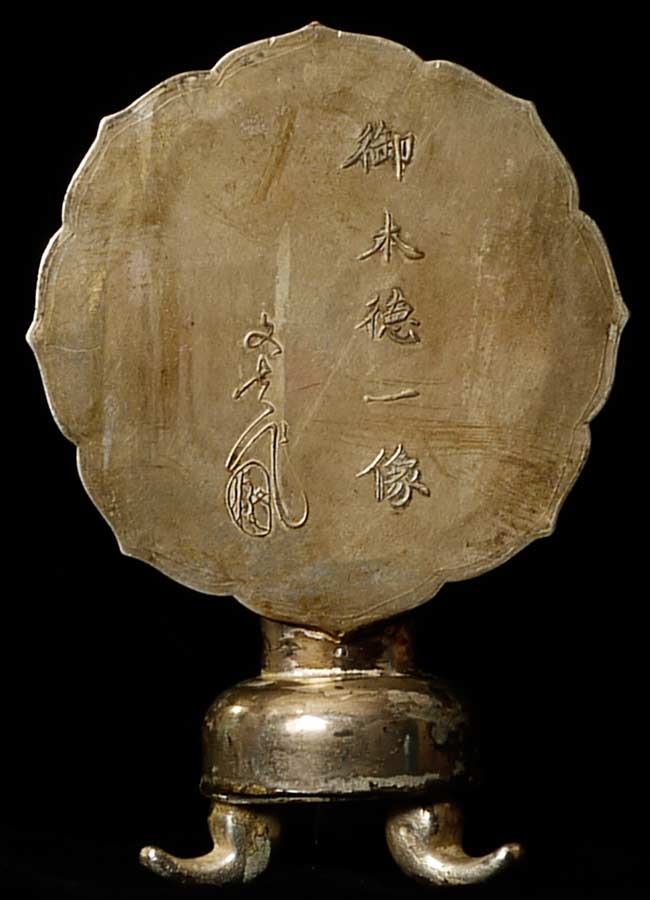 御木徳一像